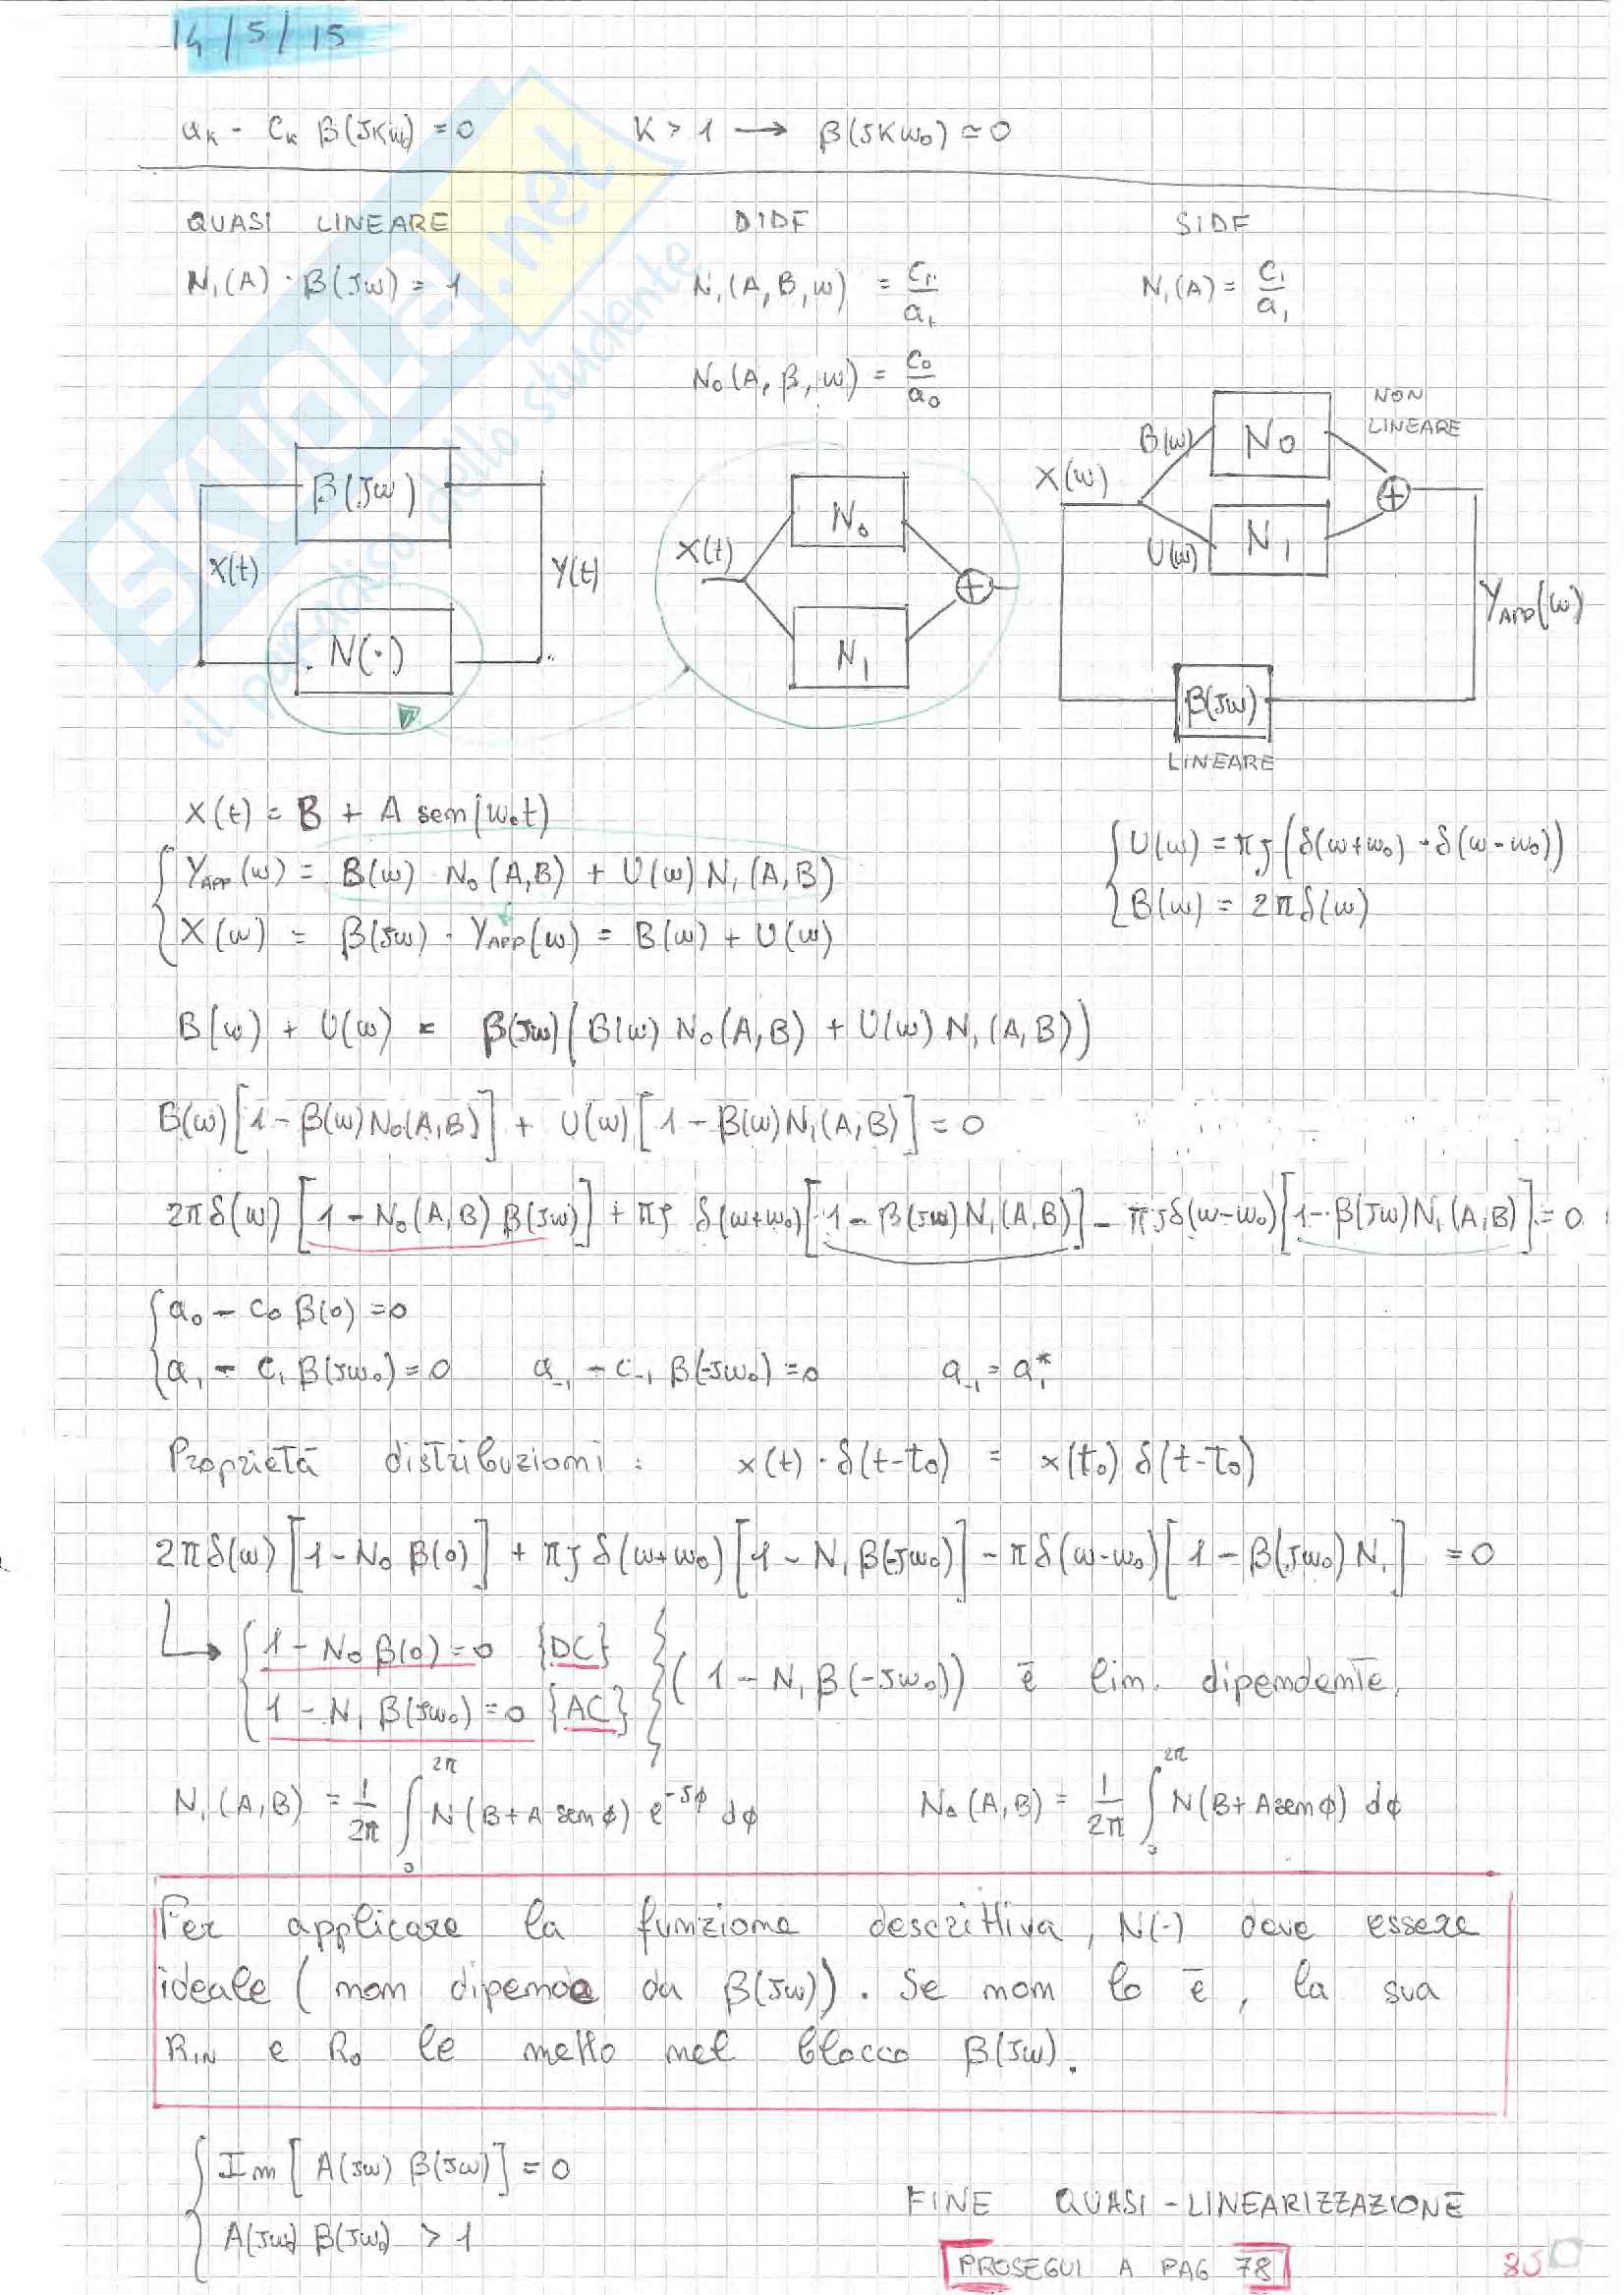 14/5/15
a_k - C_k β(jkω₀) = 0    K > 1 → β(jKω₀) ≃ 0
QUASI LINEARE    DIDF    SIDF
N₁(A) · β(jω) = 1    N₁(A, B, ω) = C₁/a₁    N₁(A) = C₁/a₁
N₀(A, B, ω) = C₀/a₀
NON LINEARE
β(jω)    X(t)    Y(t)    N(·)
X(t)    N₀    N₁    +
X(ω)    B(ω)    N₀    U(ω)    N₁    +    Y_APP(ω)
β(jω)
LINEARE
X(t) = B + A sen(ω₀t)
Y_APP(ω) = B(ω) · N₀(A,B) + U(ω) N₁(A,B)    U(ω) = πj(δ(ω+ω₀) - δ(ω-ω₀))
X(ω) = β(jω) · Y_APP(ω) = B(ω) + U(ω)    B(ω) = 2πδ(ω)
B(ω) + U(ω) = β(jω)(B(ω) N₀(A,B) + U(ω) N₁(A,B))
B(ω)[1 - β(ω)N₀(A,B)] + U(ω)[1 - β(ω)N₁(A,B)] = 0
2πδ(ω)[1 - N₀(A,B) β(jω)] + πj δ(ω+ω₀)[1 - β(jω)N₁(A,B)] - πjδ(ω-ω₀)[1 - β(jω)N₁(A,B)] = 0
a₀ - C₀ β(0) = 0
a₁ - C₁ β(jω₀) = 0    a₋₁ - C₋₁ β(-jω₀) = 0    a₋₁ = a₁*
Proprietà distribuzioni : x(t) · δ(t-t₀) = x(t₀) δ(t-t₀)
2πδ(ω)[1 - N₀ β(0)] + πj δ(ω+ω₀)[1 - N₁ β(-jω₀)] - πδ(ω-ω₀)[1 - β(jω₀) N₁] = 0
1 - N₀ β(0) = 0 {DC}
(1 - N₁ β(-jω₀)) è lin. dipendente.
1 - N₁ β(jω₀) = 0 {AC}
N₁(A,B) = 1/2π ∫₀^2π N(B+A senφ) e^-jφ dφ    N₀(A,B) = 1/2π ∫₀^2π N(B+A senφ) dφ
Per applicare la funzione descrittiva, N(·) deve essere
ideale (non dipende da β(jω)). Se non lo è, la sua
R_IN e R₀ le metto nel blocco β(jω).
Im[A(jω) β(jω)] = 0
A(jω₀) β(jω₀) > 1
FINE QUASI-LINEARIZZAZIONE
PROSEGUI A PAG 78
SKUOLA.net
il paradiso dello studente